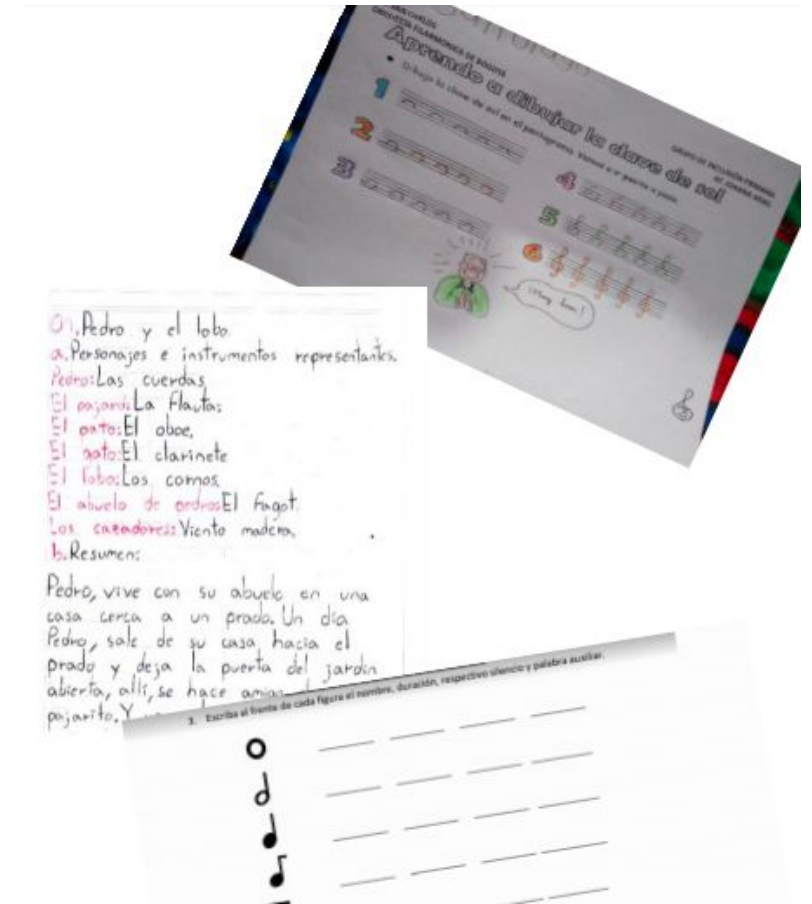 ORQUESTA FILARMONICA DE BOGOTA
Aprendo a dibujar la clave de sol
Dibuja la clave de sol en el pentagrama. Vamos a ir paso a paso.
GRUPO DE INCLUSIÓN PRIMARIA
1
2
3
4
5
6
¡Muy bien!
01. Pedro y el lobo
a. Personajes e instrumentos representantes.
Pedro: Las cuerdas
El pajaro: La flauta:
El pato: El oboe.
El gato: El clarinete
El lobo: Los cornos.
El abuelo de pedro: El fagot.
Los cazadores: Viento madera.
b. Resumen:
Pedro, vive con su abuelo en una
casa cerca a un prado. Un día
Pedro, sale de su casa hacia el
prado y deja la puerta del jardín
abierta, allí, se hace
pajarito. Y
3. Escriba al frente de cada figura el nombre, duración, respectivo silencio y palabra auxiliar.